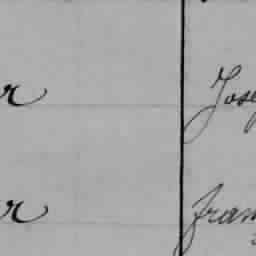 r Jose
r fran